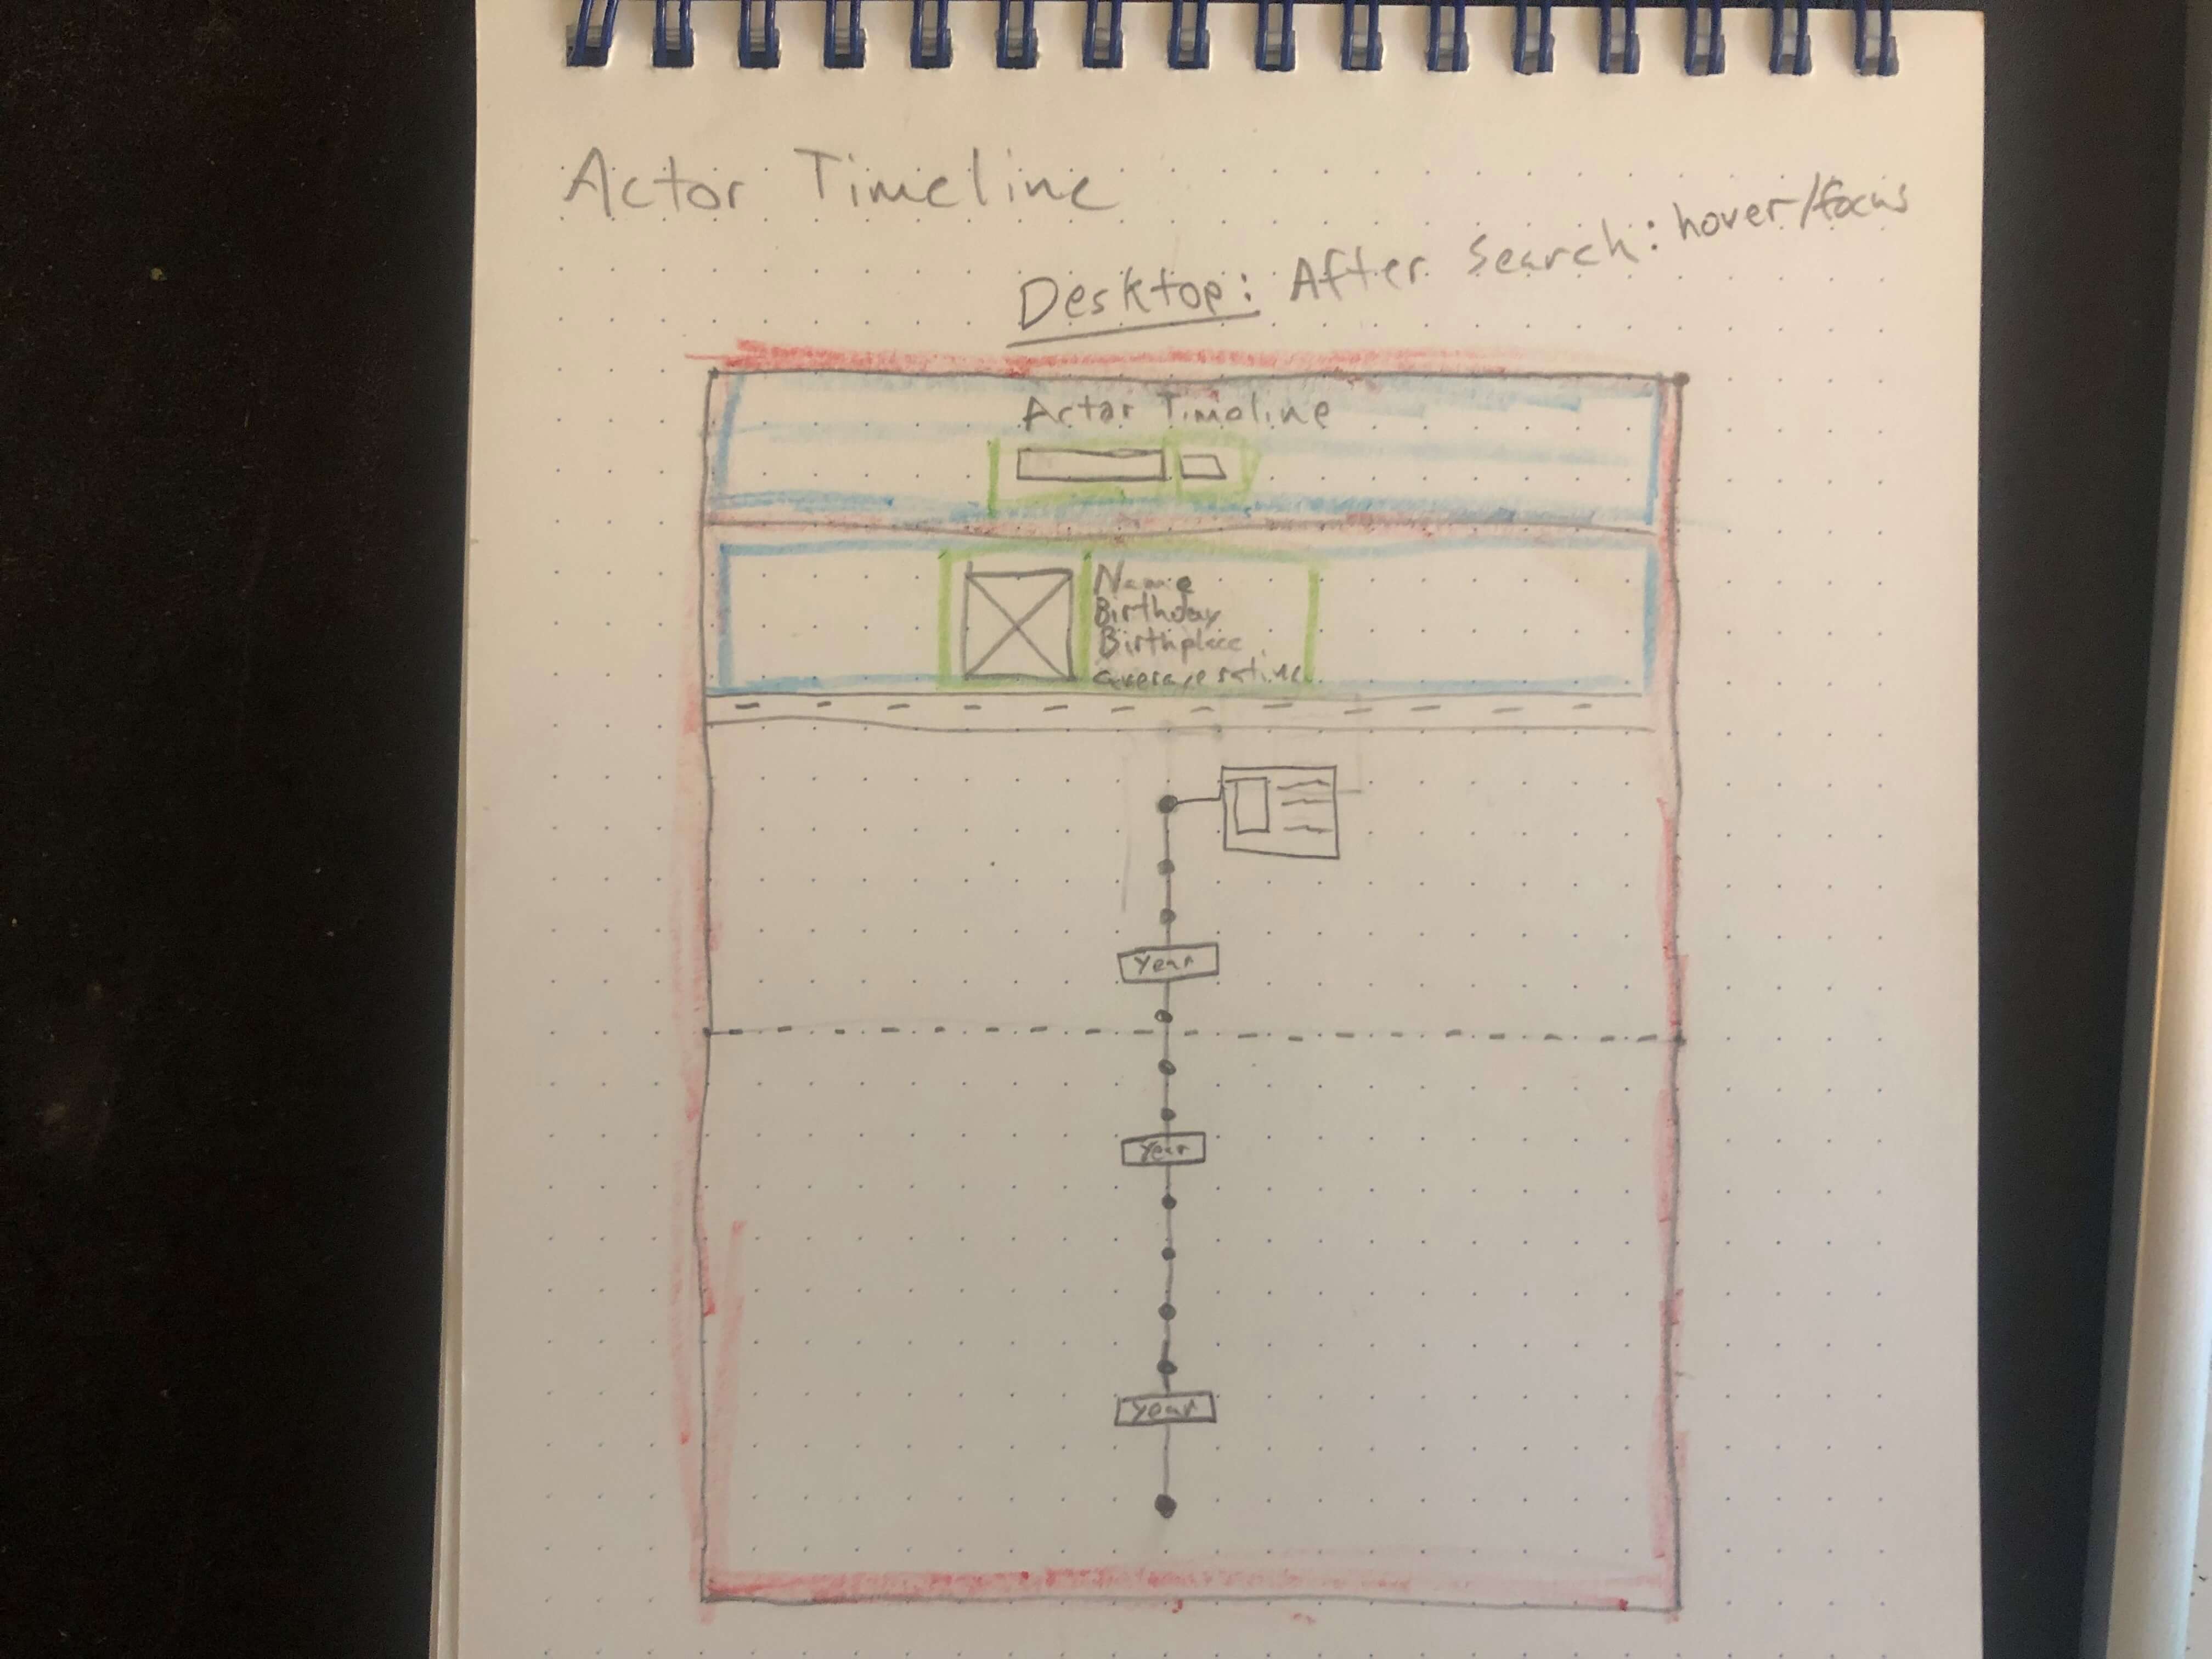 Actor Timeline
Desktop: After search: hover/focus
Actor Timeline
Name
Birthday
Birthplace
average rating
Year
Year
Year